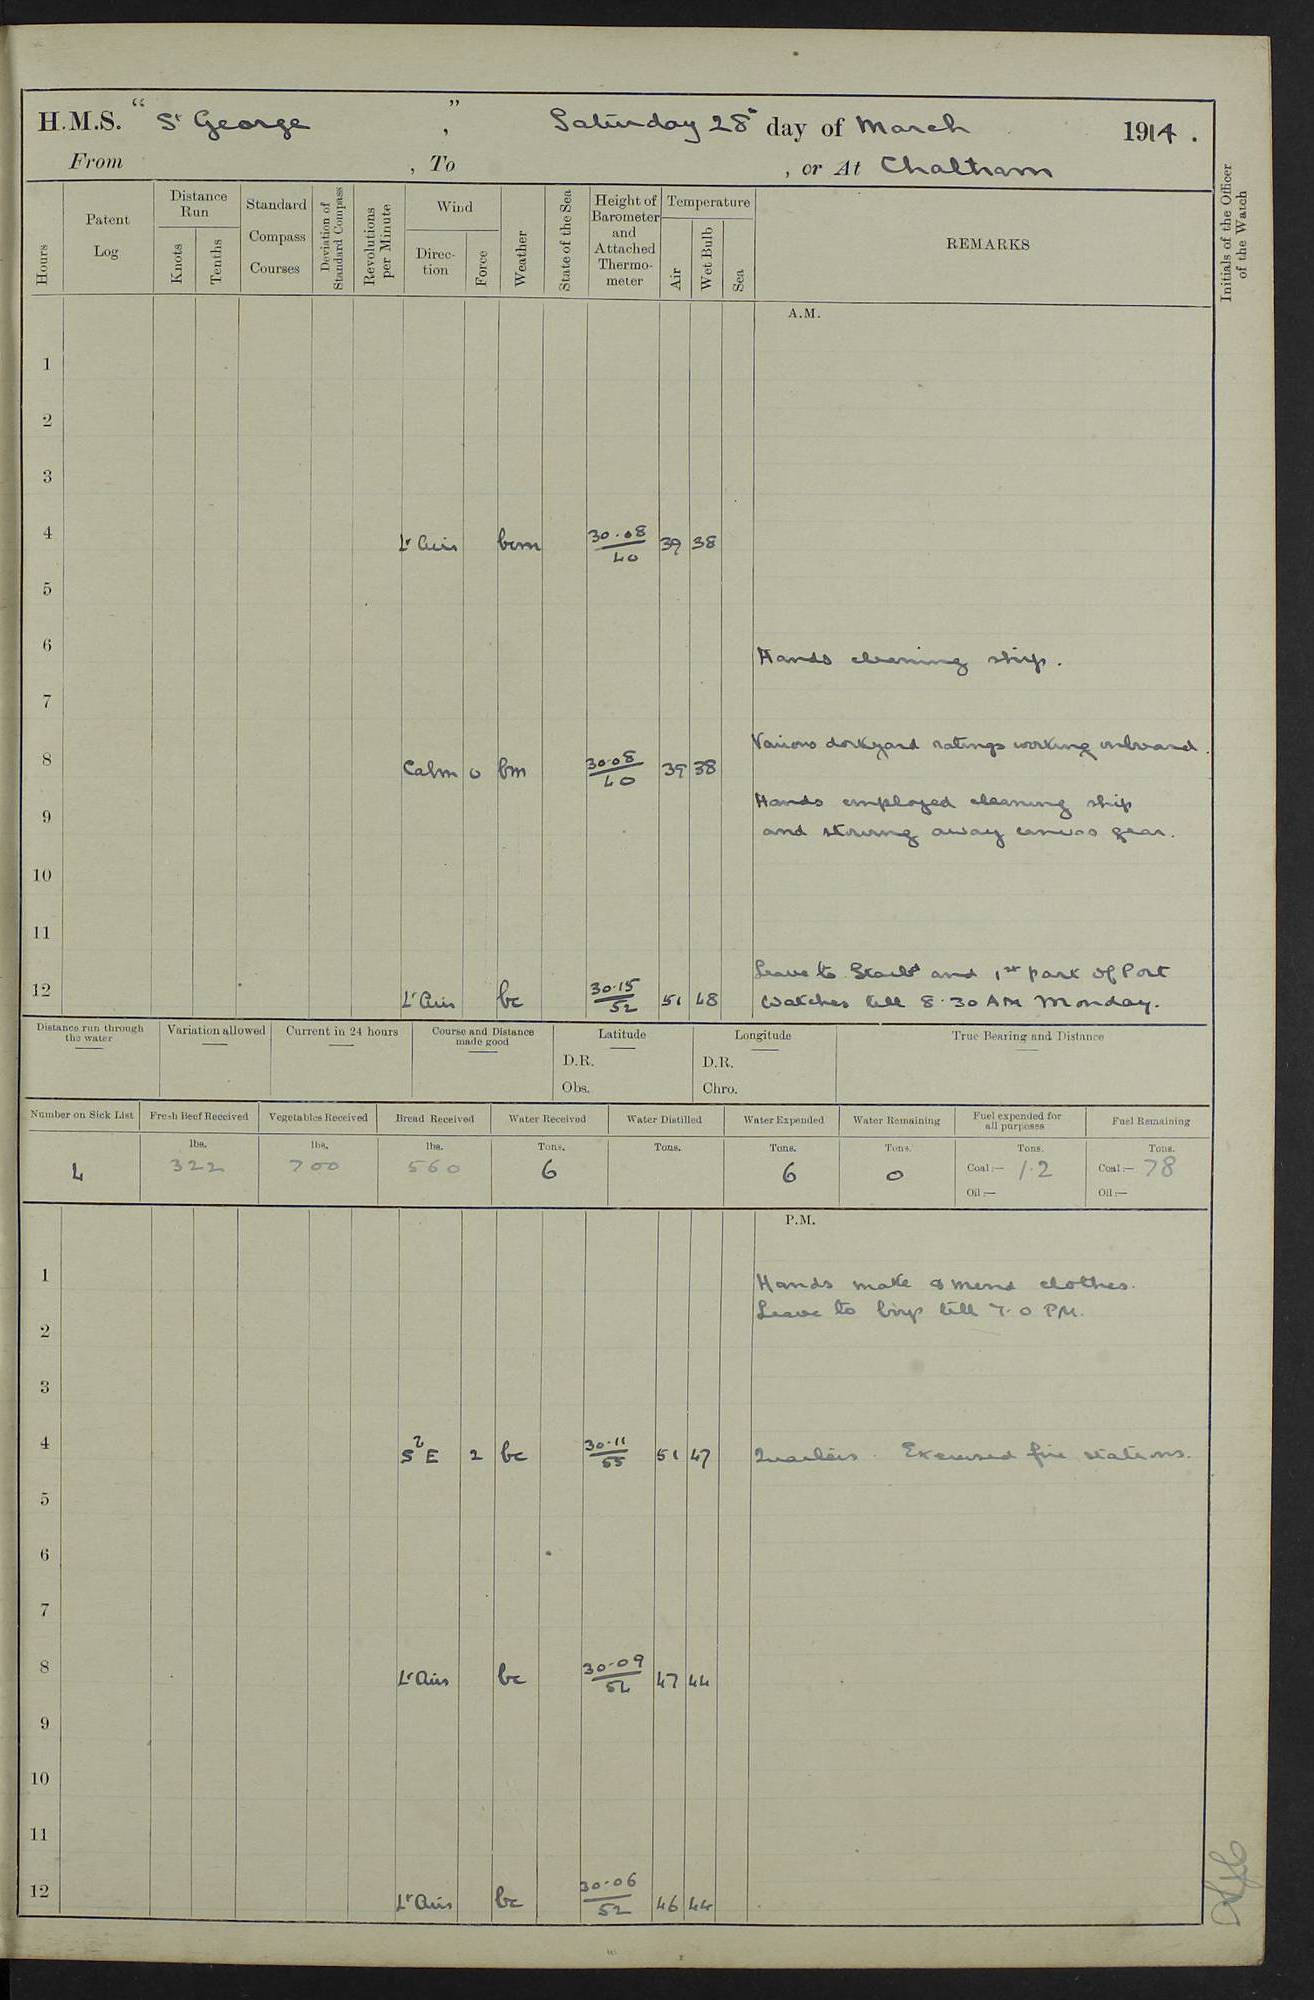 H.M.S. "St George", Saturday 28th day of March 1914.
From , To , or At Chatham
Hours
Patent Log
Distance Run
Knots
Tenths
Standard Compass Courses
Deviation of Standard Compass
Revolutions per Minute
Wind
Direction
Force
Weather
State of the Sea
Height of Barometer and Attached Thermometer
Temperature
Air
Wet Bulb
Sea
REMARKS
Initials of the Officer of the Watch
A.M.
1
2
3
4 Lt Airs bcm 30.08/40 39 38
5
6 Hands cleaning ship.
7
Various dockyard ratings working onboard.
8 Calm 0 bm 30.08/40 39 38
Hands employed cleaning ship
9 and stowing away canvas gear.
10
11
Leave to Starbd and 1st part of Port
12 Lt Airs bc 30.15/52 51 48 Watches till 8.30 AM Monday.
Distance run through the water
Variation allowed
Current in 24 hours
Course and Distance made good
Latitude
D.R.
Obs.
Longitude
D.R.
Chro.
True Bearing and Distance
Number on Sick List
Fresh Beef Received
Vegetables Received
Bread Received
Water Received
Water Distilled
Water Expended
Water Remaining
Fuel expended for all purposes
Fuel Remaining
lbs. lbs. lbs. Tons. Tons. Tons. Tons. Tons. Tons.
4 322 700 560 6 6 0 Coal:— 1.2 Coal:— 78
Oil:— Oil:—
P.M.
1 Hands make & mend clothes.
Leave to boys till 7.0 PM.
2
3
4 S2E 2 bc 30.11/55 51 47 Quarters. Exercised fire stations.
5
6
7
8 Lt Airs bc 30.09/54 47 44
9
10
11
12 Lt Airs bc 30.06/52 46 44